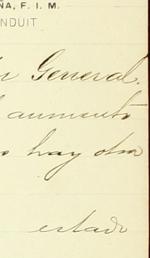 NA, F. I. M.
CONDUIT
General.
aumento
hay otra
estado